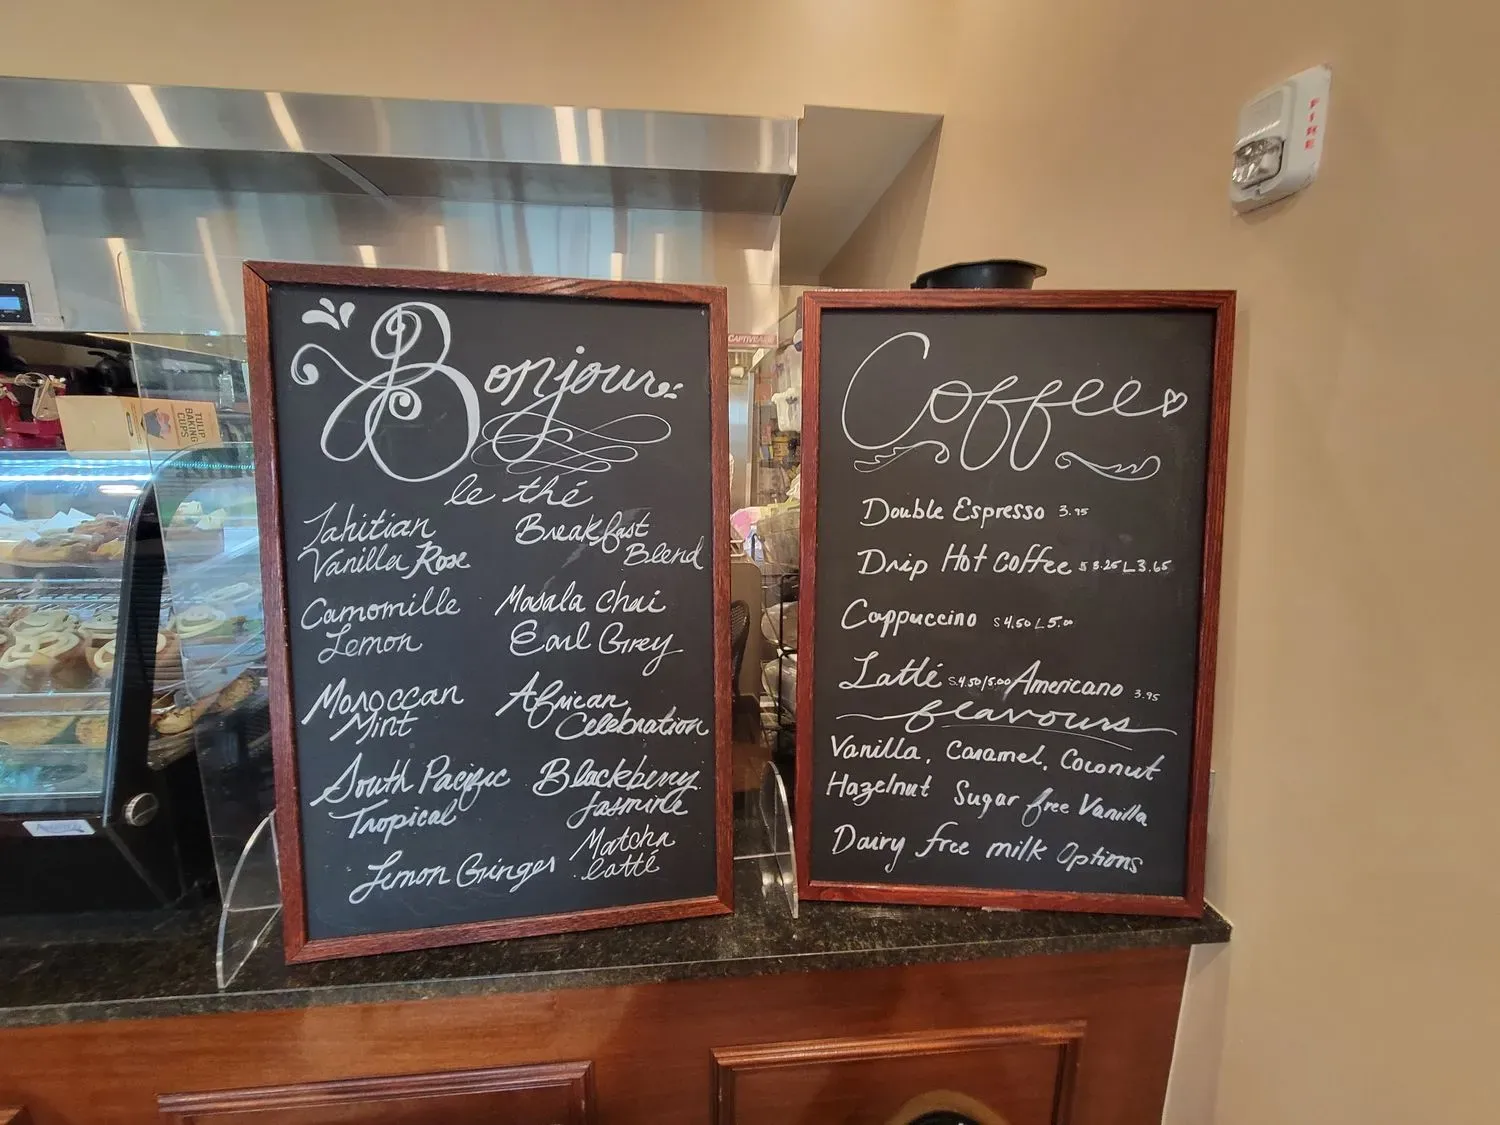 Bonjour
le thé
Tahitian
Vanilla Rose
Camomille
Lemon
Moroccan
Mint
South Pacific
Tropical
Lemon Ginger
Breakfast
Blend
Masala Chai
Earl Grey
African
Celebration
Blackberry
Jasmine
Matcha
latté
Coffee
Double Espresso 3.95
Drip Hot Coffee S 3.25 L 3.65
Cappuccino S 4.50 L 5.00
Latté S 4.50/5.00 Americano 3.95
flavours
Vanilla, Caramel, Coconut
Hazelnut Sugar free Vanilla
Dairy free milk Options
TULIP
BAKING
CUPS
CAPTIVEAIRE
FIRE